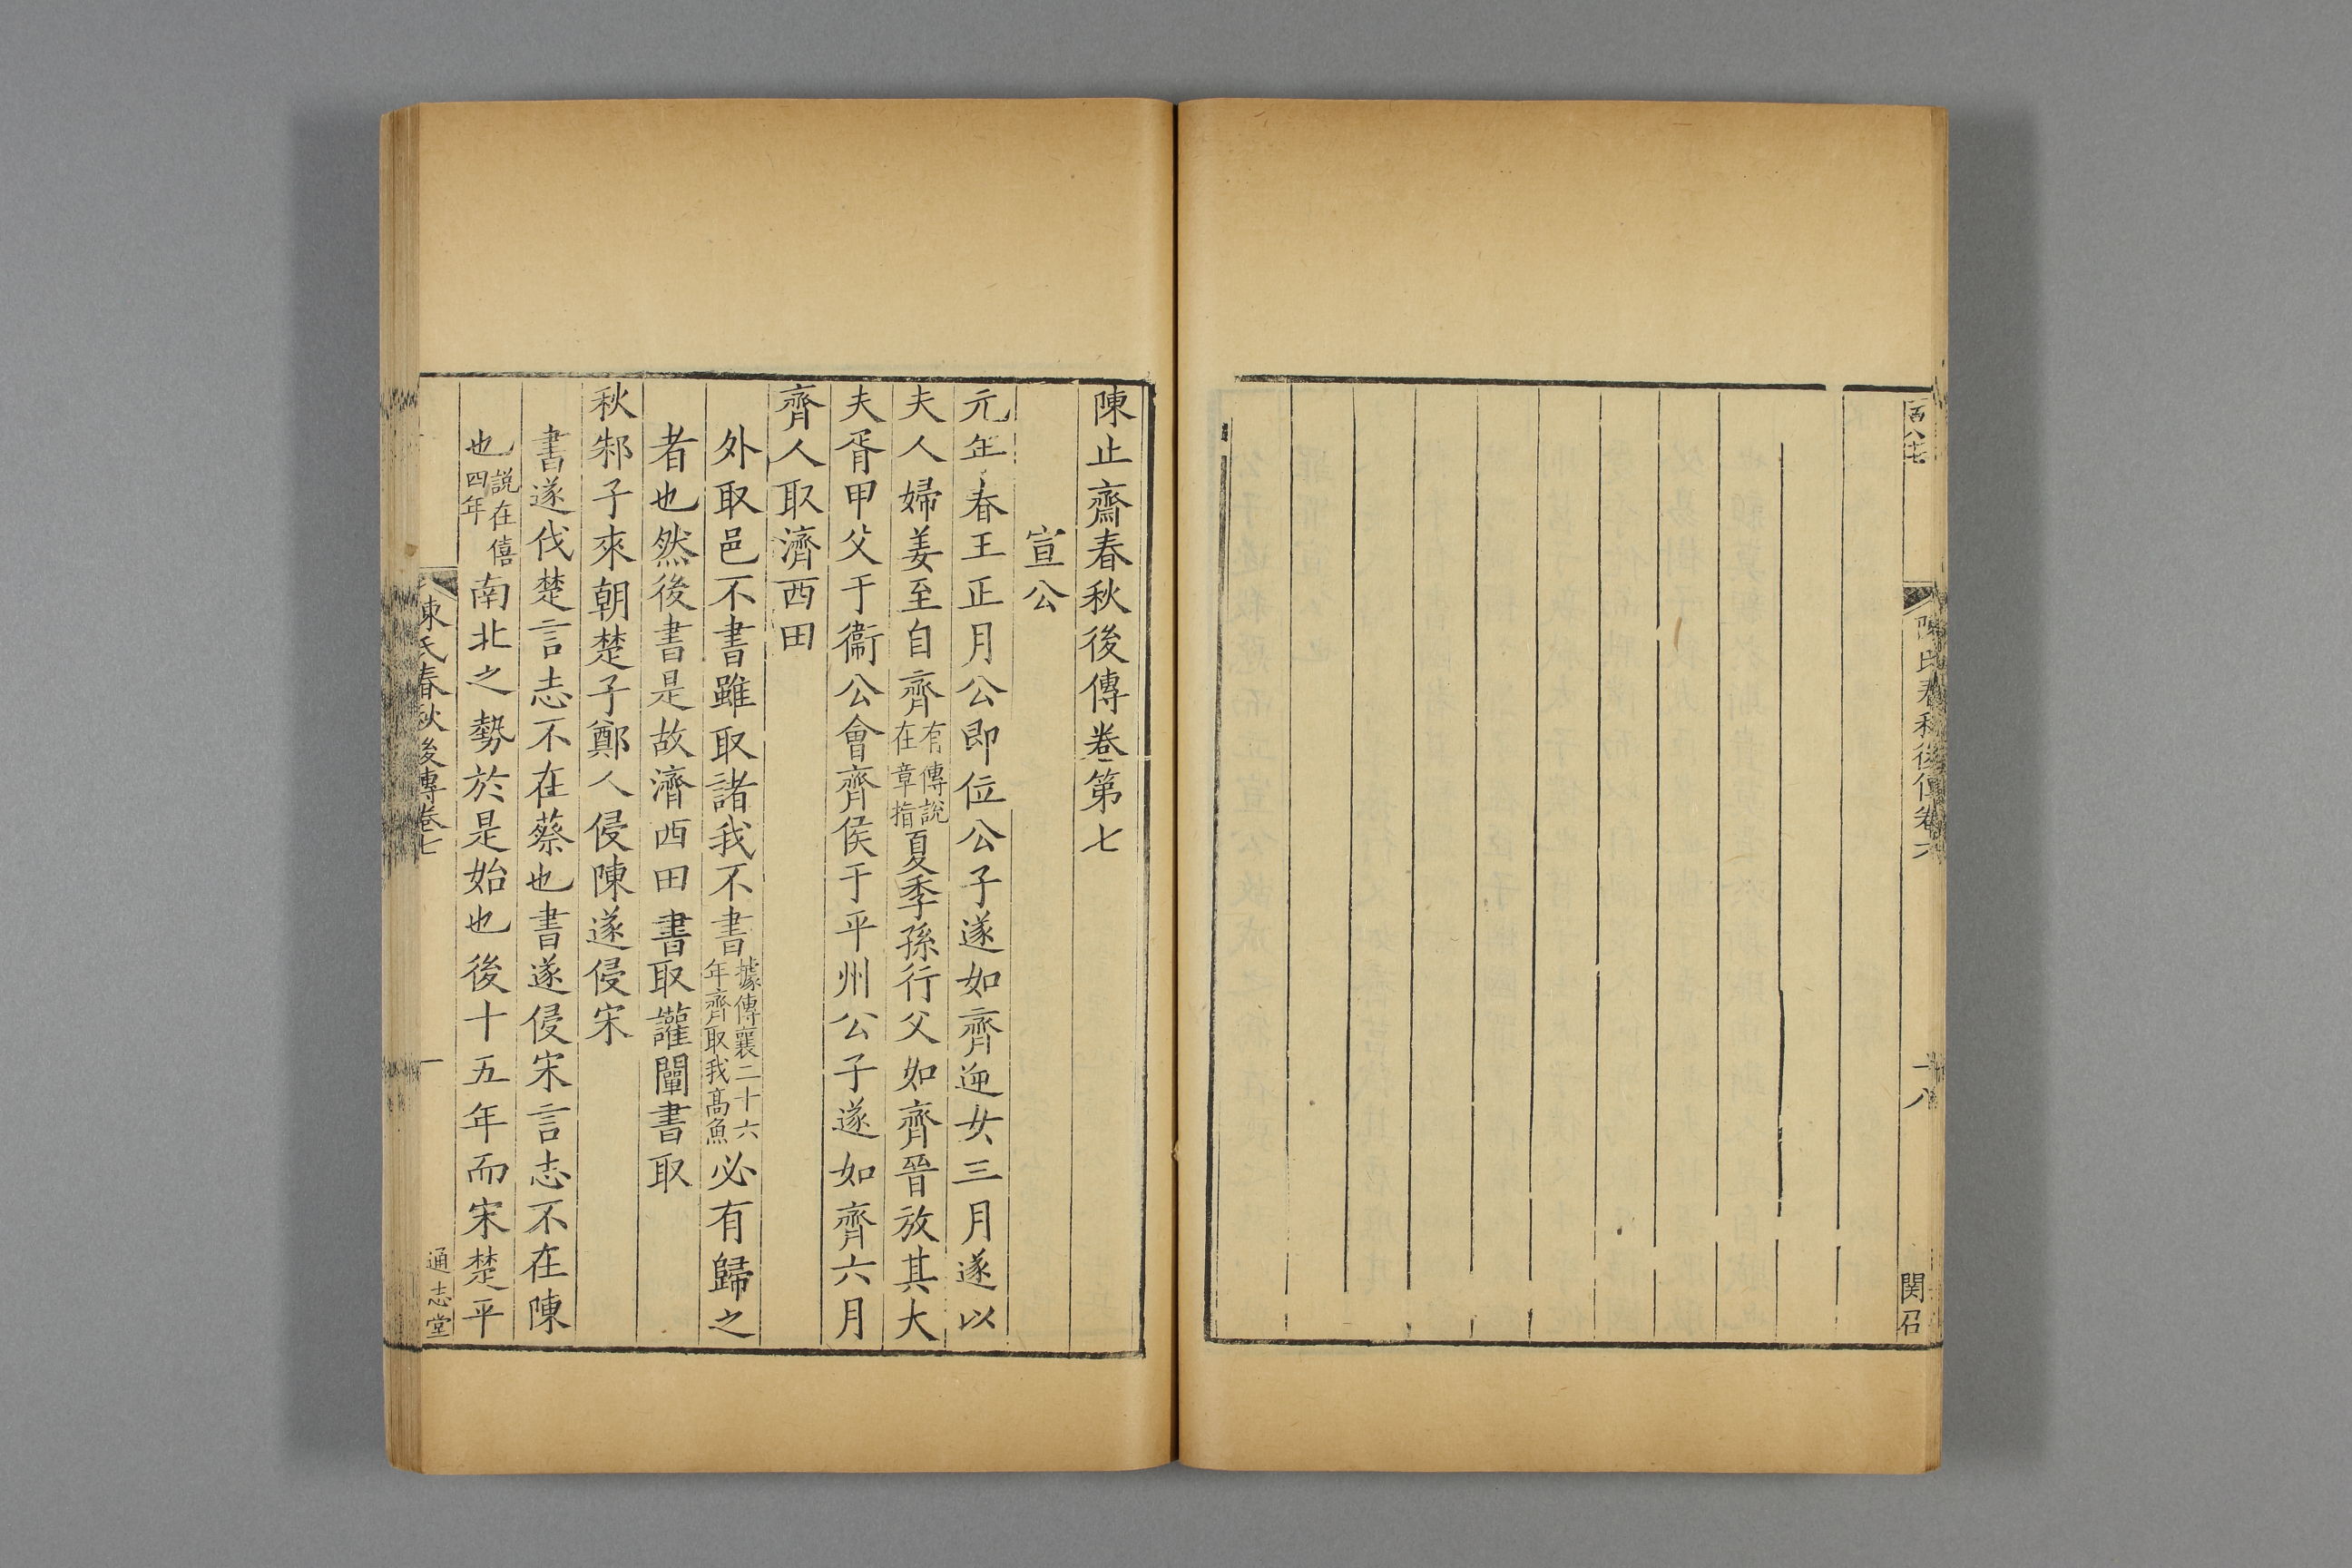 陳氏春秋後傳卷六
十八
関召
陳止齋春秋後傳卷第七
宣公
元年春王正月公即位公子遂如齊逆女三月遂以
夫人婦姜至自齊有傳說在章指夏季孫行父如齊晉放其大
夫胥甲父于衞公會齊侯于平州公子遂如齊六月
齊人取濟西田
外取邑不書雖取諸我不書據傳襄二十六年齊取我高魚必有歸之
者也然後書是故濟西田書取讙闡書取
秋邾子來朝楚子鄭人侵陳遂侵宋
書遂伐楚言志不在蔡也書遂侵宋言志不在陳
也說在僖四年南北之勢於是始也後十五年而宋楚平
陳氏春秋後傳卷七
一
通志堂